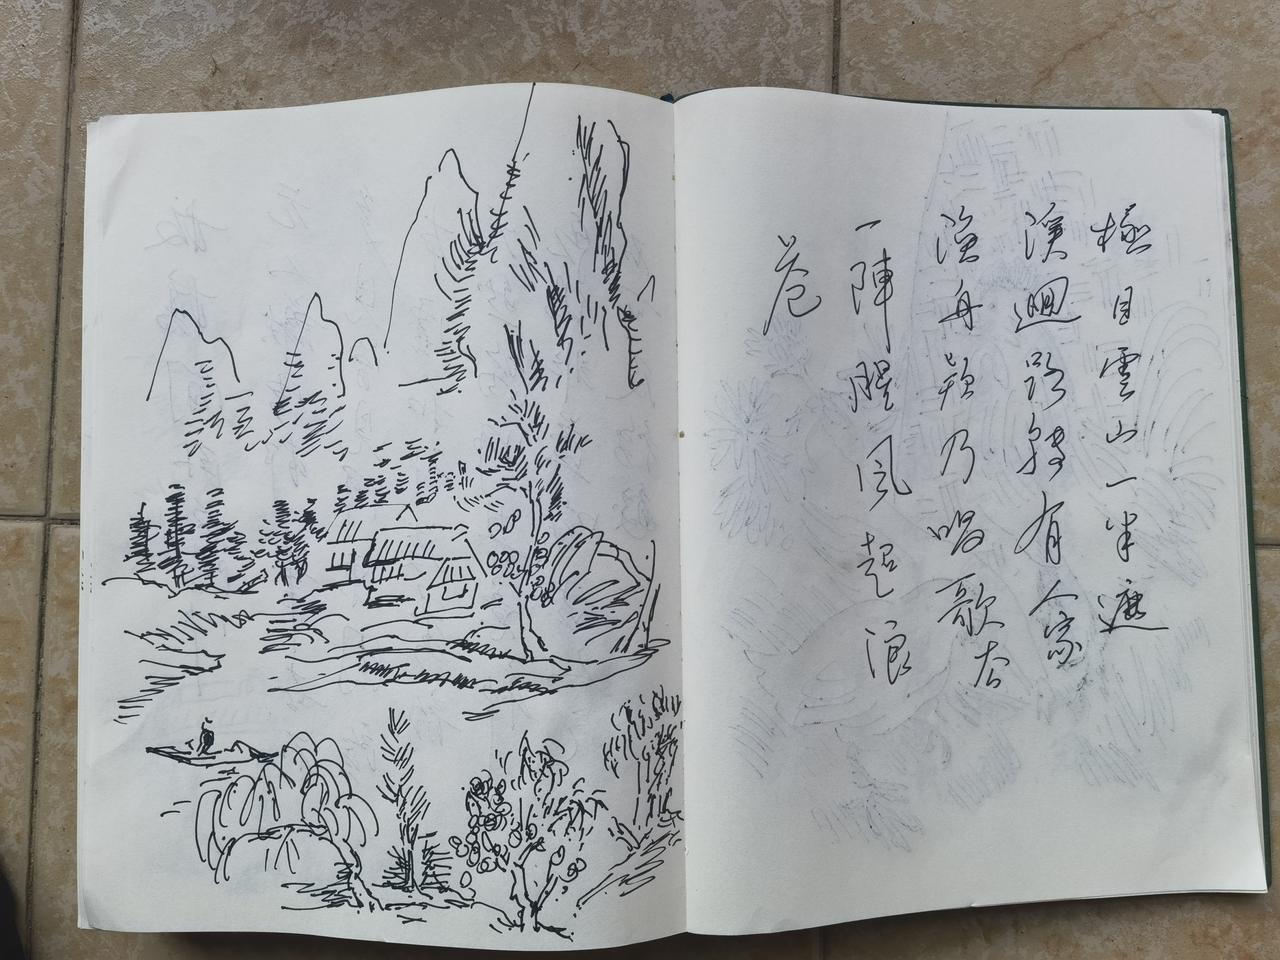 極目雲山一半遮
溪迴路轉有人家
漁舟欸乃唱歌去
一陣腥風起浪
花